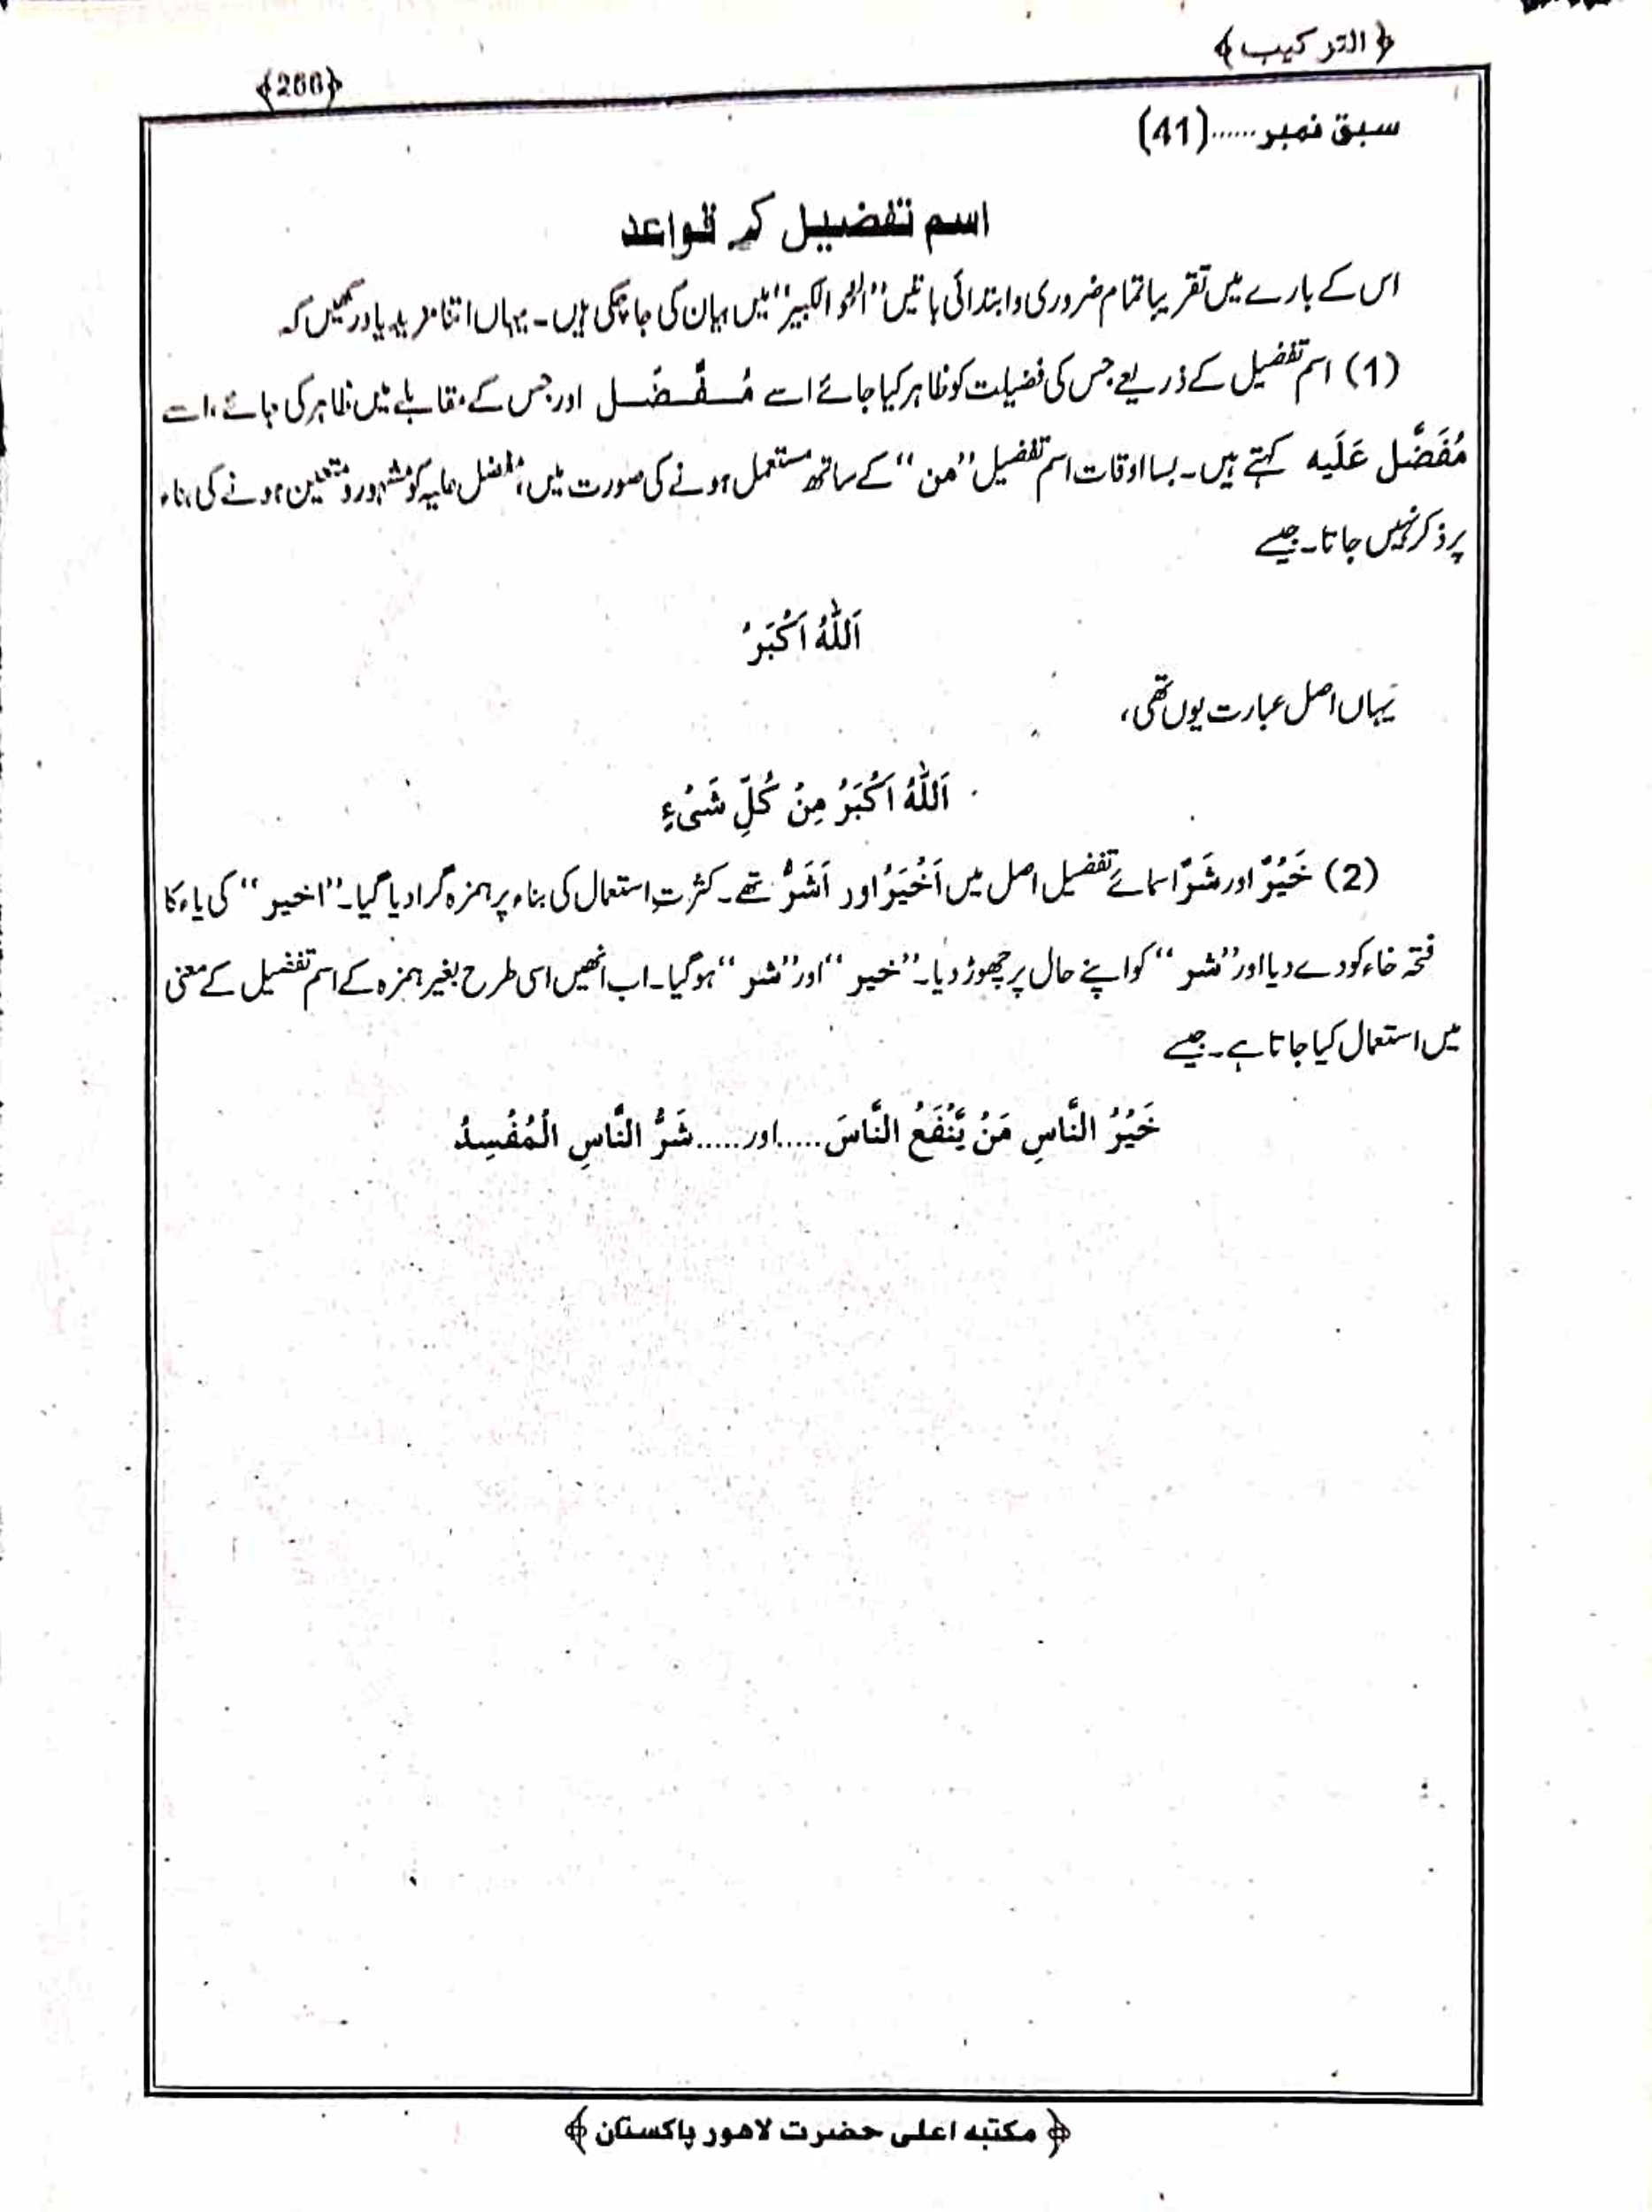 ﴿التر کیب﴾
﴿266﴾
سبق نمبر......(41)
اسم تفضیل کے قواعد
اس کے بارے میں تقریبا تمام ضروری وابتدائی باتیں ’’النحو الکبیر‘‘ میں بیان کی جاچکی ہیں۔ یہاں اتنا مزید یاد رکھیں کہ
(1) اسم تفضیل کے ذریعے جس کی فضیلت کو ظاہر کیا جائے اسے مُفَضَّل اور جس کے مقابلے میں ظاہر کی جائے، اسے
مُفَضَّل عَلَیه کہتے ہیں۔ بسا اوقات اسم تفضیل ’’من‘‘ کے ساتھ مستعمل ہونے کی صورت میں، مفضل علیہ کو مشہور و متعین ہونے کی بناء
پر ذکر نہیں جاتا۔ جیسے
اَللّٰهُ اَكْبَرُ
یہاں اصل عبارت یوں تھی،
اَللّٰهُ اَكْبَرُ مِنْ كُلِّ شَیْءٍ
(2) خَیْرٌ اور شَرٌّ اسمائے تفضیل اصل میں اَخْیَرُ اور اَشَرُّ تھے۔ کثرتِ استعمال کی بناء پر ہمزہ گرا دیا گیا۔ ’’اخیر‘‘ کی یاء کا
فتحہ خاء کو دے دیا اور ’’شر‘‘ کو اپنے حال پر چھوڑ دیا۔ ’’خیر‘‘ اور ’’شر‘‘ ہو گیا۔ اب انھیں اسی طرح بغیر ہمزہ کے اسم تفضیل کے معنی
میں استعمال کیا جاتا ہے۔ جیسے
خَیْرُ النَّاسِ مَنْ یَّنْفَعُ النَّاسَ.....اور.....شَرُّ النَّاسِ الْمُفْسِدُ
﴿مکتبه اعلی حضرت لاهور پاکستان﴾